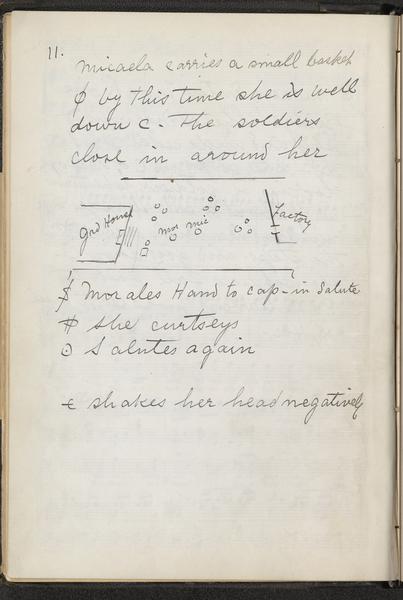 11.
Micaela carries a small basket
ϕ by this time she is well
down C - The soldiers
close in around her
Grd House
Mor Mic
Factory
$ Morales Hand to cap - in Salute
# she curtseys
⊙ Salutes again
€ shakes her head negatively